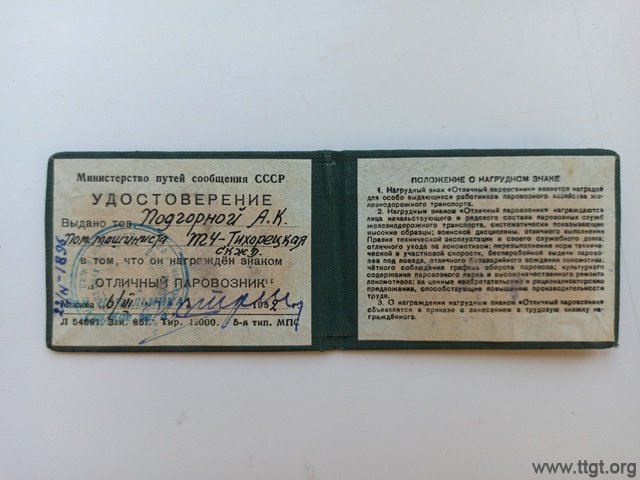 Министерство путей сообщения СССР
УДОСТОВЕРЕНИЕ
Выдано тов. Подгорной А.К.
Пом. машиниста ТЧ-Тихорецкая
скжд.
в том, что он награждён знаком
„ОТЛИЧНЫЙ ПАРОВОЗНИК"
Москва
195
Л 54681. Зак. 851. Тир. 12000. 5-я тип. МПС
ПОЛОЖЕНИЕ О НАГРУДНОМ ЗНАКЕ
1. Нагрудный знак «Отличный паровозник» является наградой
для особо выдающихся работников паровозного хозяйства же-
лезнодорожного транспорта.
2. Нагрудным знаком «Отличный паровозник» награждаются
лица начальствующего и рядового состава паровозных служб
железнодорожного транспорта, систематически показывающие
высокие образцы: воинской дисциплины, отличного выполнения
Правил технической эксплуатации и своего служебного долга;
отличного ухода за локомотивом; перевыполнения норм техниче-
ской и участковой скорости, бесперебойной выдачи парово-
зов под поезда, отличного безаварийного вождения локомотива;
чёткого соблюдения графика оборота паровоза; культурного
содержания паровозного парка и высококачественного ремонта
локомотивов; за ценные изобретательские и рационализаторские
предложения, способствующие повышению производительности
труда.
3. О награждении нагрудным знаком «Отличный паровозник»
объявляется в приказе с занесением в трудовую книжку на-
граждённого.
www.ttgt.org